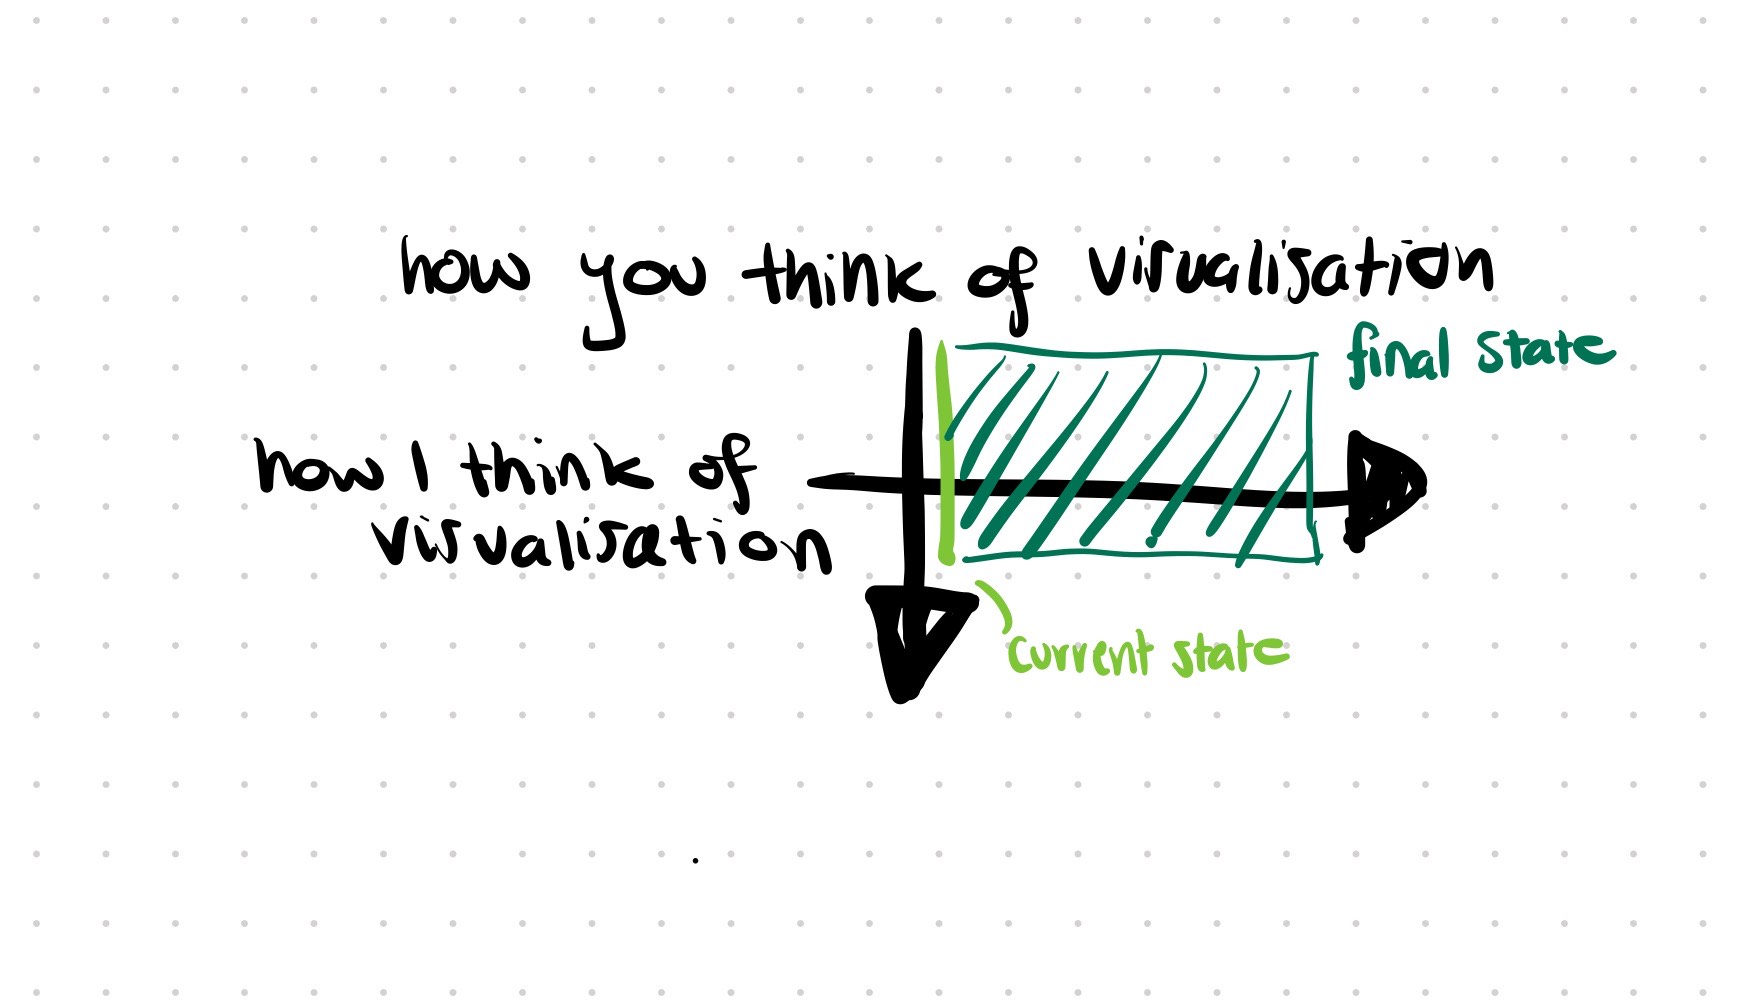 how you think of visualisation
final state
how I think of
visualisation
current state